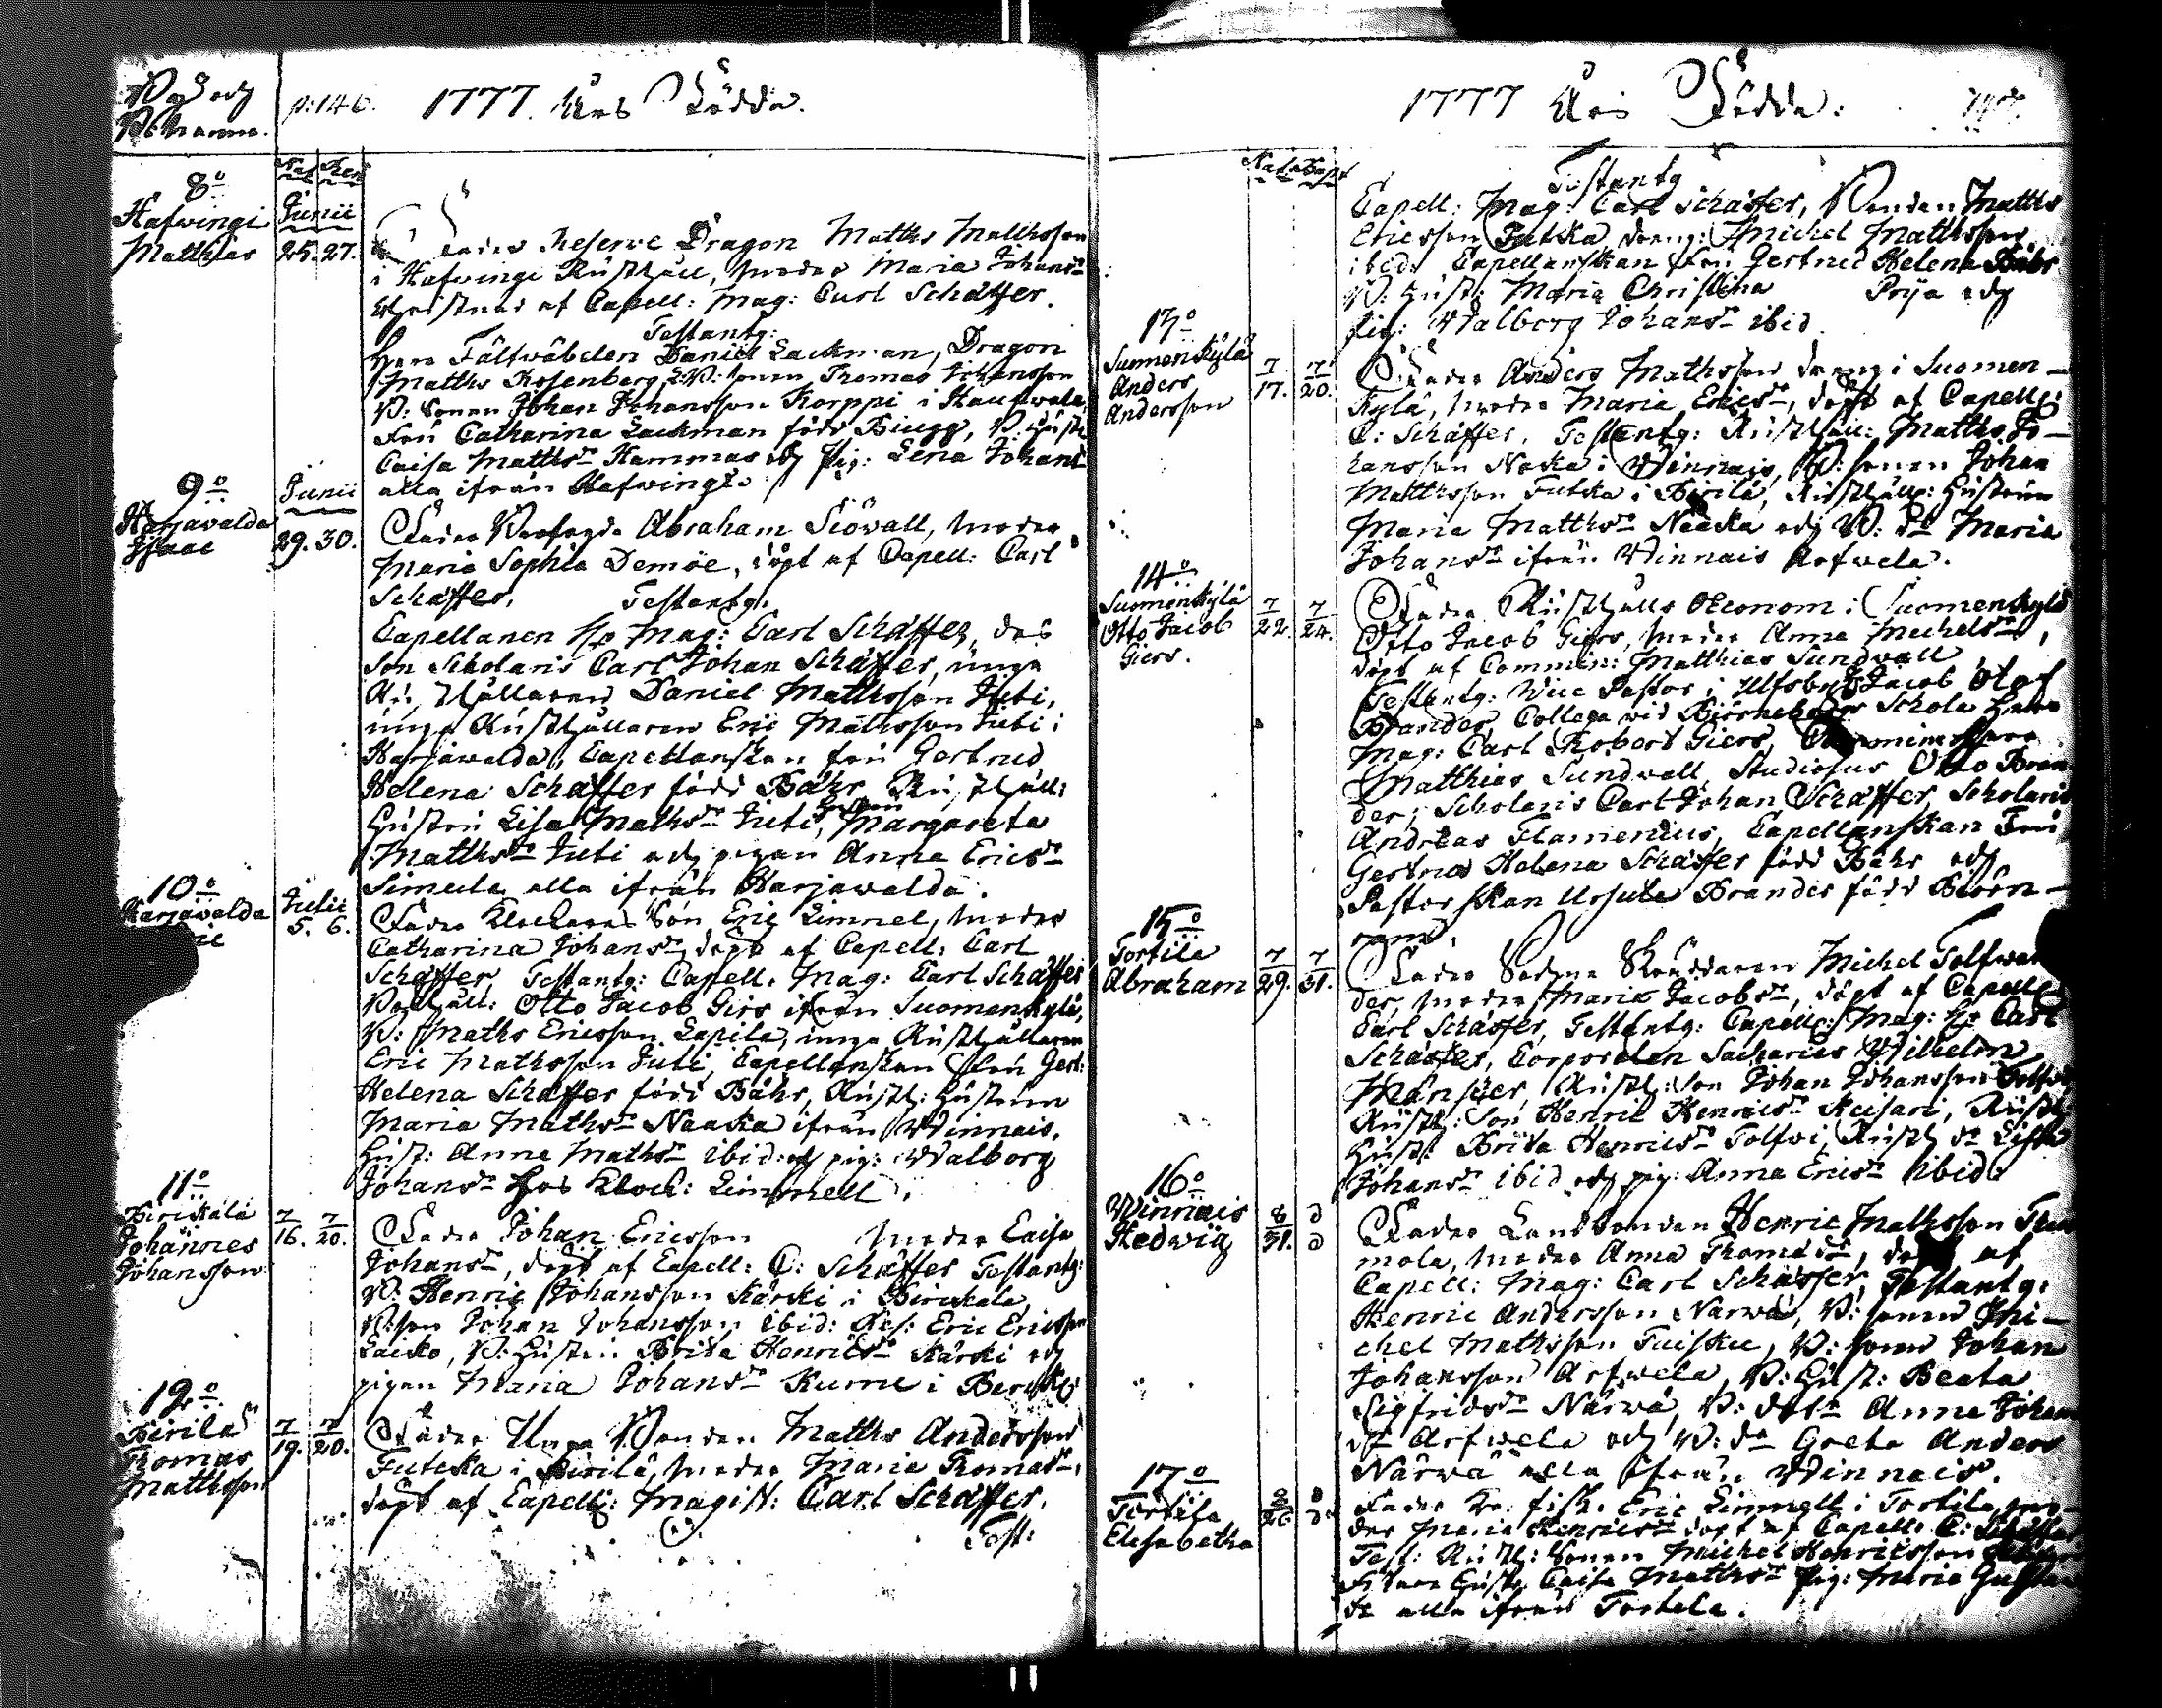 By och
Nomina.
p: 146.
1777. Års Födde.
Nat. Ren.
8o
Hafwingi
Matthias
Junii
25. 27.
Fader Reserve Dragon Matths Mathsson
i Hafwingi Rusthåll, moder Maria Johansdr
Christnad af Capell: Mag: Carl Schæffer.
Testantg:
Herr Fältwäbelen Daniel Lackman, Dragon
Matths Rosenberg, B: sonen Thomas Johansson
B: Sonen Johan Johansson Korppi i
Fru Catharina Lackman född Biugg, B: Hust:
Caisa Mattsdr Hammas och Pig: Lena Johans
alla ifrån Hafwingi.
9o
Harjawalda
Isaac
Junii
29. 30.
Fader Abraham Siöwall, moder
Maria Sophia Demoe, döpt af Capell: Carl
Schæffer, Testantg:
Capellanen Hr Mag: Carl Schæffer, des
Son Scholaris Carl Johan Schæffer, unga
Rusthållaren Daniel Mathsson Juti,
unga Rusthållaren Eric Mathsson Juti i
Harjawalda, Capellanskan fru Gertrud
Helena Schæffer född Bähr, Rusthåll:
Hustru Lisa Mathsdr Juti, Margareta
Matthsdr Juti och pigan Anna Ericsdr
Simula alla ifrån Harjawalda.
10o
Harjawalda
Julii
5. 6.
Fader Klockarens Son Eric Limnel, moder
Catharina Johansdr, döpt af Capell: Carl
Schæffer, Testantg: Capell: Mag: Carl Schæffer
Otto Jacob Girs ifrån Suomenkylä,
B: Maths Ericsson Lapila, unga Rusthållaren
Eric Mathsson Juti, Capellanskan Fru Gert:
Helena Schæffer född Bähr, Rusth: Hustrun
Maria Mathsdr Naaka ifrån Winnais,
Hust: Anna Mathsdr ibid: och pig: Walborg
Johansdr hos Klock: Limmell.
11o
Birickala
Johannes
Johansson
7/16. 7/20.
Fader Johan Ericsson moder Caisa
Johansdr, döpt af Capell: C: Schæffer Testantg:
B: Henric Johansson Kärki i Birickala
B: son Johan Johansson ibid: Eric Ericsson
B: Hustru Brita Henricsdr Kärki och
pigan Maria Johansdr Kurne i
12o
Birilä
Thomas
Matthsson
7/19. 7/20.
Fader Unga Bonden Matths Andersson
Futcka i Birilä, moder Maria Thomasdr,
döpt af Capell: Magist: Carl Schæffer.
Test:
1777 Års Födde:
147.
Nat. Bapt
Testantg
Capell: Mag: Carl Schæffer, Bonden Matths
Ericsson Futka, dreng: Michel Matthsson
ibid: Capellanskan Fru Gertrud Helena Bähr
B: Hust: Maria Christina Prija och
pig: Walborg Johansdr ibid.
13o
Suomenkylä
Anders
Andersson
7/17. 7/20.
Fader Anders Mathsson dreng i Suomen-
kylä, moder Maria Ericsdr, döpt af Capell:
C: Schæffer. Testantg: Rusthåll: Matths Jo-
hansson Naka i Winnais, B: sonen Johan
Matthsson Futka i Birilä, Rusthåll: Hustrun
Maria Matthsdr Naaka och B: dr Maria
Johansdr ifrån Winnais Arfwela.
14o
Suomenkylä
Otto Jacob
Giers.
7/22. 7/24.
Fader Rusthålls Oeconom i Suomenkylä
Otto Jacob Giers, moder Anna Michelsdr,
döpt af Commin: Matthias Sundwall
Testantg: Wice Pastor i Ulfsby Jacob Olof
Brander, Collega wid Biörneborgs Schola Herr
Mag: Carl Robert Giers,
Matthias Sundwall, Studiosus Otto Bran
der, Scholaris Carl Johan Schæffer, Scholaris
Andreas Flamendus, Capellanskan Fru
Gertrud Helena Schæffer född Bähr och
Pastorskan Ursula Brander född Biörn-
15o
Tortila
Abraham
7/29. 7/31.
Fader Sockne Skräddaren Michel Tolfwan
der, moder Maria Jacobsdr, döpt af Capell:
Carl Schæffer, Testantg: Capell: Mag: Hr Carl
Schæffer, Corporalen Sacharias Wilhelm
Rusth: Son Johan Johansson Tolfwi
Rusth: Son Henric Henricsn Keisari, Rusth
Hust: Brita Henricsdr Tolfwi, Rusth dr Lisa
Johansdr ibid och pig: Anna Ericsdr ibid:
16o
Winnais
Hedwig
8/31. d d
Fader Landbonden Henric Mathsson
mola, moder Anna Thomædr, döpt af
Capell: Mag: Carl Schæffer, Testantg:
Henric Andersson Narwa, B: sonen Mi-
chel Mathsson Tuisku, B: sonen Johan
Johansson Arfwela, B: Hust: Beata
Sigfridsdr Närwä, B: dotr Anna Johan
dr Arfwela och B: dr Greta Anders
Närwä alla ifrån Winnais.
17o
Tortila
Elisabetha
Fader Eric Limnell i Tortila, mo-
der Maria Henricsdr döpt af Capell: C: Schæffer
Test: Rusth: Sonen Michel Henricsson
Hust: Caisa Matthsdr Pig: Maria Gustaf
dr alla ifrån Tortela.